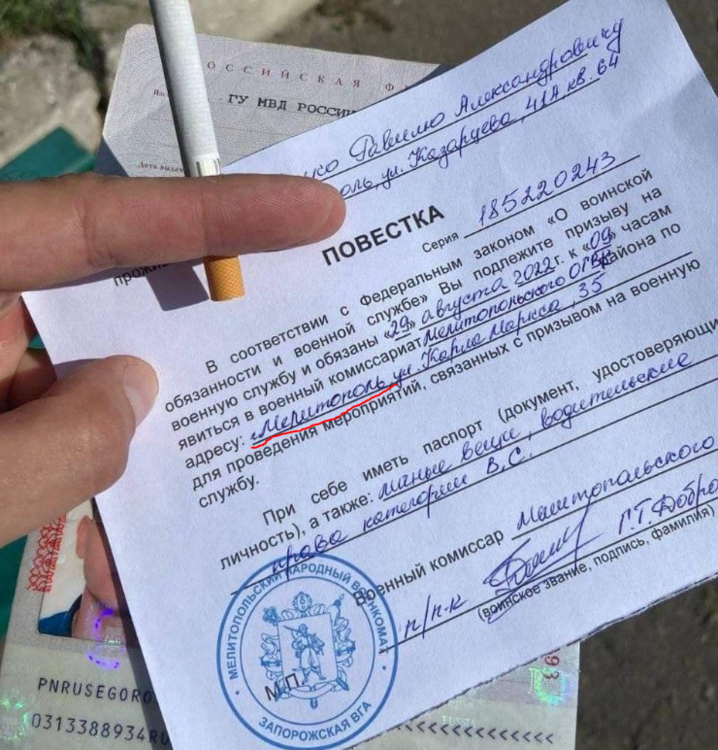 РОССИЙСКАЯ
ГУ МВД РОССИИ
Дата выдачи
Равилю Александровичу
ул. Казарцева, 41А, кв. 64
ПОВЕСТКА
Серия 185220243
В соответствии с Федеральным законом «О воинской
обязанности и военной службе» Вы подлежите призыву на
военную службу и обязаны «29» августа 2022 г. к «09» часам
явиться в военный комиссариат Мелитопольского района по
адресу: г. Мелитополь, ул. Карла Маркса, 35
для проведения мероприятий, связанных с призывом на военную
службу.
При себе иметь паспорт (документ, удостоверяющий
личность), а также: личные вещи, водительские
права категории В.С.
Военный комиссар Мелитопольского
п/п-к Г.Т. Добро
(воинское звание, подпись, фамилия)
М.П.
МЕЛИТОПОЛЬСКИЙ НАРОДНЫЙ ВОЕНКОМАТ
ЗАПОРОЖСКАЯ ВГА
PNRUSEGORO
0313388934RU